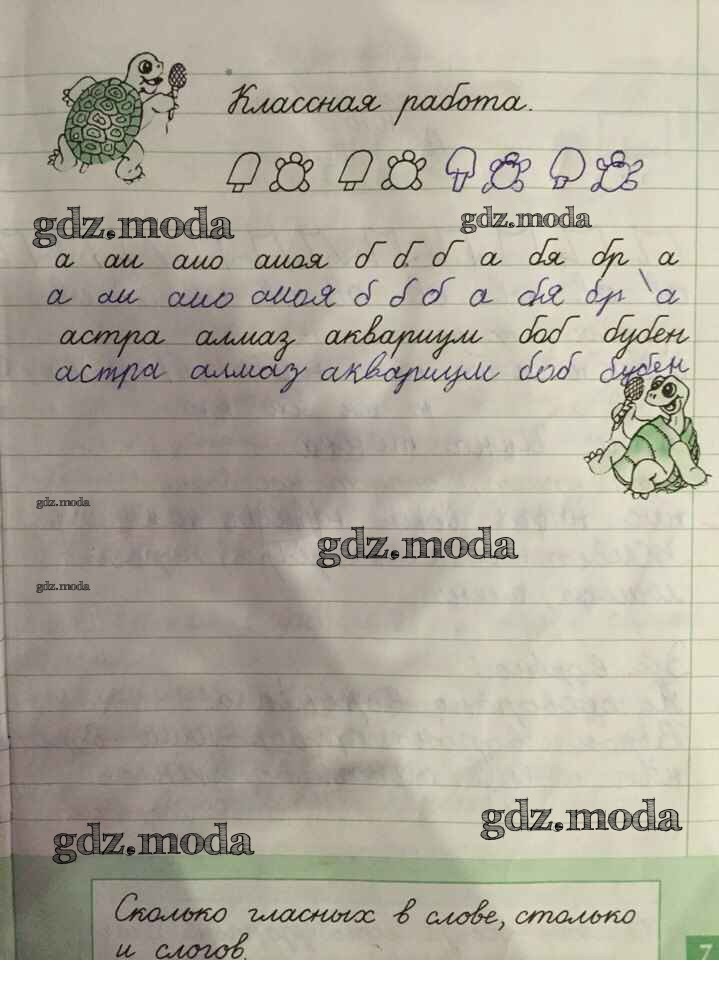 Классная работа.
gdz.moda
gdz.moda
а аи аио аиоя б б б а бя бр а
а аи аио аиоя б б б а бя бр а
астра алмаз аквариум боб бубен
астра алмаз аквариум боб бубен
gdz.moda
gdz.moda
gdz.moda
gdz.moda
gdz.moda
Сколько гласных в слове, столько
и слогов.
7